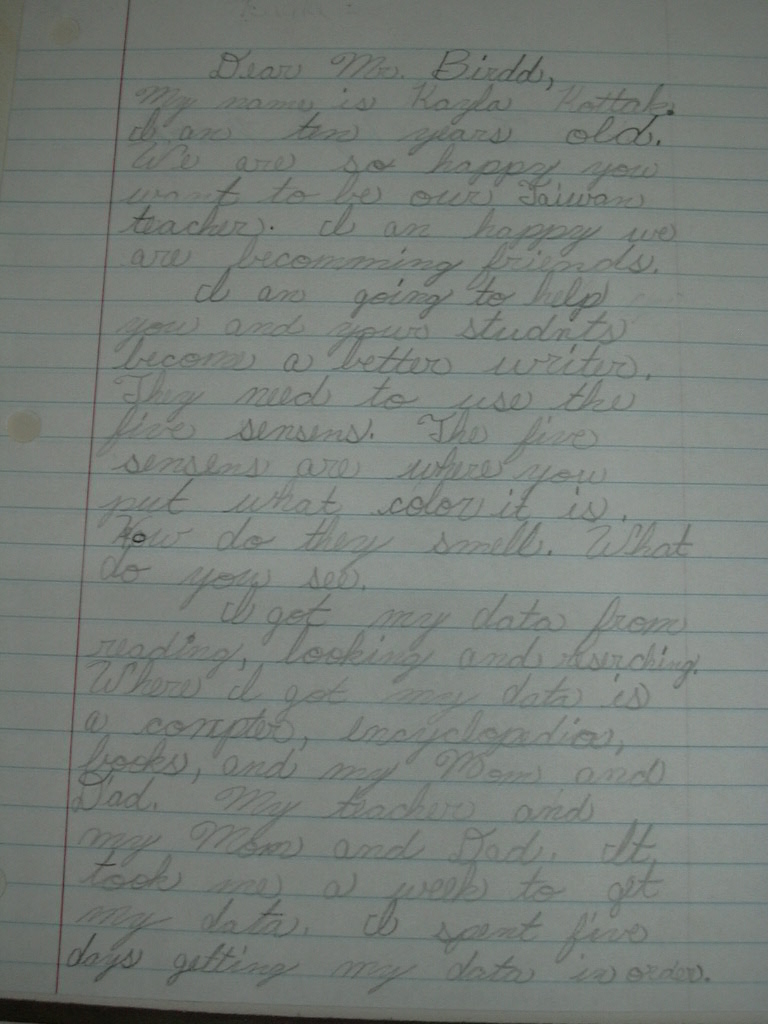 Dear Mr. Birdd,
My name is Kayla Kottak.
I an ten years old.
We are so happy you
want to be our Taiwan
teacher. I an happy we
are becomming friends.
I an going to help
you and yours studnts
become a better writer.
They need to use the
five sensens. The five
sensens are where you
put what color it is.
How do they smell. What
do you see.
I got my data from
reading, looking and reserching.
Where I got my data is
a compter, encyclopedias,
books, and my Mom and
Dad. My teacher and
my Mom and Dad. It
took me a week to get
my data. I spent five
days getting my data in order.